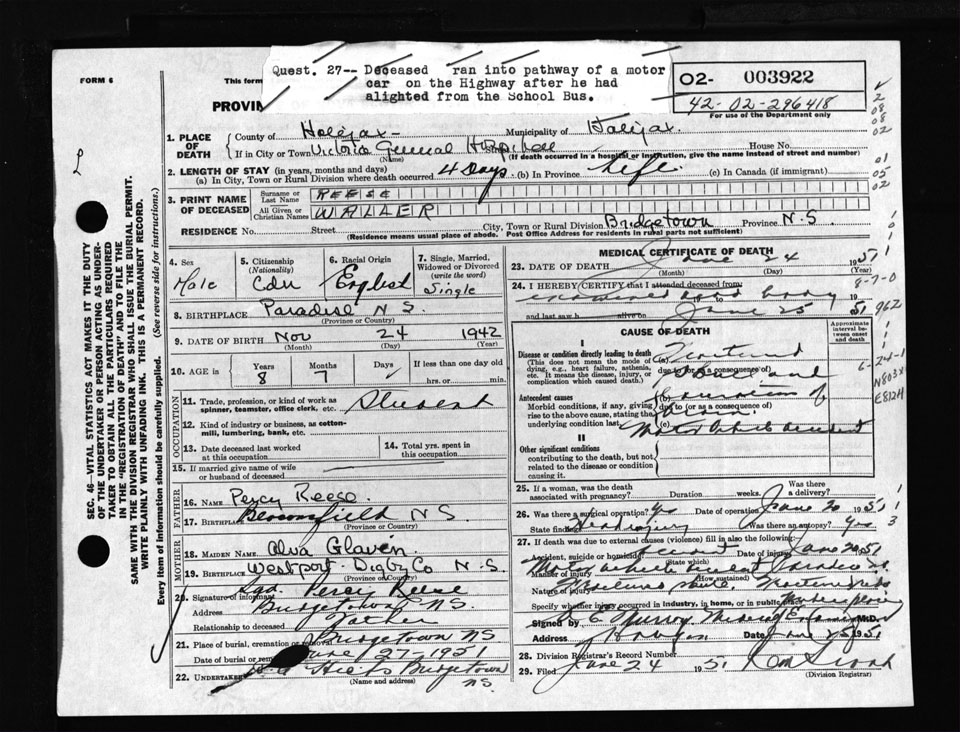 FORM 6
This form
Quest. 27-- Deceased ran into pathway of a motor
car on the Highway after he had
alighted from the School Bus.
PROVIN
02- 003922
42-02-296418
For use of the Department only
2
08
08
02
01
05
02
SEC. 46—VITAL STATISTICS ACT MAKES IT THE DUTY
OF THE UNDERTAKER OR PERSON ACTING AS UNDER-
TAKER TO OBTAIN ALL THE PARTICULARS REQUIRED
IN THE "REGISTRATION OF DEATH" AND TO FILE THE
SAME WITH THE DIVISION REGISTRAR WHO SHALL ISSUE THE BURIAL PERMIT.
WRITE PLAINLY WITH UNFADING INK. THIS IS A PERMANENT RECORD.
Every item of Information should be carefully supplied. (See reverse side for instructions.)
1. PLACE OF DEATH
County of Halifax Municipality of Halifax.
If in City or Town Victoria General Hospital Street House No.
(Name) (If death occurred in a hospital or institution, give the name instead of street and number)
2. LENGTH OF STAY (in years, months and days)
(a) In City, Town or Rural Division where death occurred 4 Days (b) In Province life (c) In Canada (if immigrant)
3. PRINT NAME OF DECEASED
Surname or Last Name REESE
All Given or Christian Names WALLER
RESIDENCE No. Street City, Town or Rural Division Bridgetown Province N.S.
(Residence means usual place of abode. Post Office Address for residents in rural parts not sufficient)
4. Sex Male
5. Citizenship (Nationality) Cdn
6. Racial Origin English
7. Single, Married, Widowed or Divorced (write the word) Single
8. BIRTHPLACE Paradise N S.
(Province or Country)
9. DATE OF BIRTH Nov 24 1942
(Month) (Day) (Year)
10. AGE Years 8 Months 7 Days If less than one day old hrs. or min.
OCCUPATION
11. Trade, profession, or kind of work as spinner, teamster, office clerk, etc. Student
12. Kind of industry or business, as cotton-mill, lumbering, bank, etc.
13. Date deceased last worked at this occupation
14. Total yrs. spent in this occupation
15. If married give name of wife or husband of deceased
FATHER
16. Name Percy Reese.
17. Birthplace Bloomfield N S.
(Province or Country)
MOTHER
18. MAIDEN NAME Alva Glaven.
19. Birthplace Westport Digby Co N.S.
(Province or Country)
20. Signature of informant Sgd. Percy Reese
Address Bridgetown, N.S.
Relationship to deceased Father
21. Place of burial, cremation or Bridgetown NS
Date of burial or June 27-1951
22. UNDERTAKER Hicks Bridgetown
(Name and address) N.S.
MEDICAL CERTIFICATE OF DEATH
23. DATE OF DEATH June 24 1951
(Month) (Day) (Year)
24. I HEREBY CERTIFY that I attended deceased from:
examined dead body 19
and last saw h alive on June 25 51
8-7-0
962
CAUSE OF DEATH
Approximate interval between onset and death
I
Disease or condition directly leading to death (a) Fractured
(This does not mean the mode of dying, e.g., heart failure, asthenia, etc. It means the disease, injury, or complication which caused death.)
due to (or as a consequence of)
Antecedent causes (b)
Morbid conditions, if any, giving rise to the above cause, stating the underlying condition last.
due to (or as a consequence of)
(c) Motor Vehicle accident
N803x
E8124
II
Other significant conditions
contributing to the death, but not related to the disease or condition causing it.
25. If a woman, was the death associated with pregnancy? Duration weeks. Was there a delivery?
26. Was there a surgical operation? Yes Date of operation June 20 1951
State findings Head injury Was there an autopsy? Yes
3
27. If death was due to external causes (violence) fill in also the following:
Accident, suicide or homicide Accident Date of injury June 20 51
(State which)
Manner of injury Motor Vehicle Paradise N.S.
(How sustained)
Nature of injury Fractured
Specify whether injury occurred in industry, in home, or in public place
Signed by Murray Medical M.D.
Address Halifax Date June 25 1951
28. Division Registrar's Record Number
29. Filed June 24 1951
(Division Registrar)